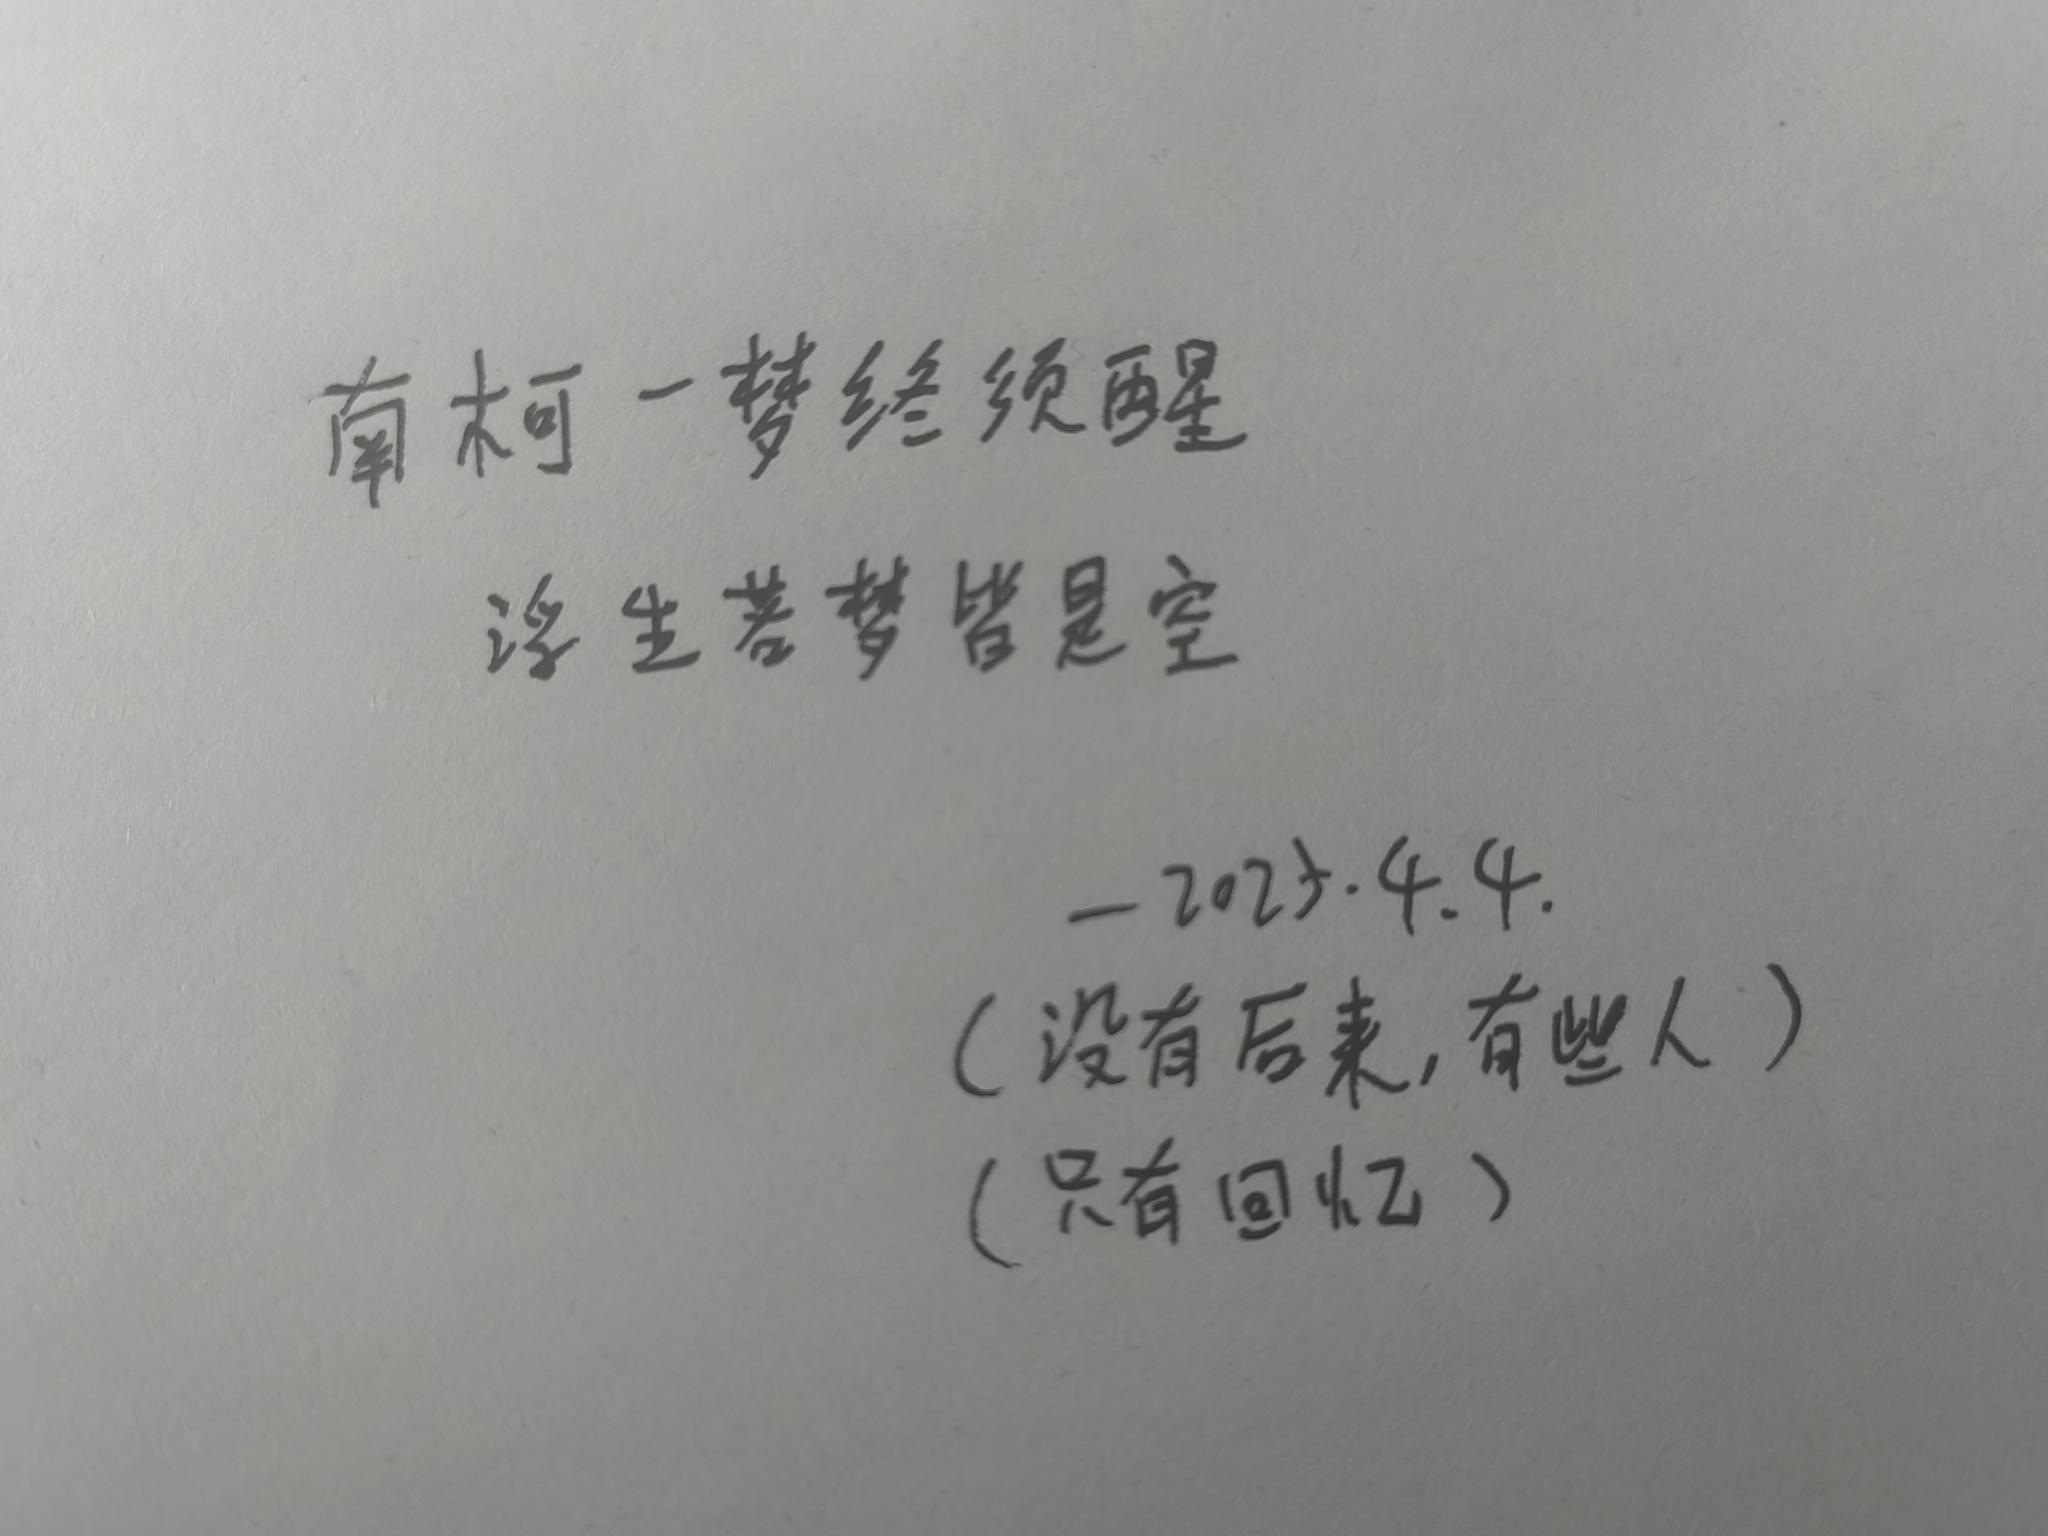 南柯一梦终须醒
浮生若梦皆是空
—2025.4.4.
(没有后来,有些人)
(只有回忆)